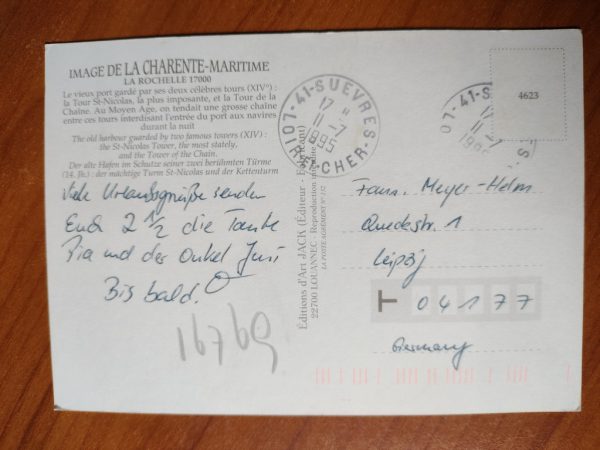 IMAGE DE LA CHARENTE-MARITIME
LA ROCHELLE 17000
Le vieux port gardé par ses deux célèbres tours (XIVº) :
la Tour St-Nicolas, la plus imposante, et la Tour de la
Chaîne. Au Moyen Age, on tendait une grosse chaîne
entre ces tours interdisant l'entrée du port aux navires
durant la nuit
The old harbour guarded by two famous towers (XIV) :
the St-Nicolas Tower, the most stately,
and the Tower of the Chain.
Der alte Hafen im Schutze seiner zwei berühmten Türme
(14. Jh.) : der mächtige Turm St-Nicolas und der Kettenturm
Viele Urlaubsgrüße senden
Euch 2 1/2 die Tante
Pia und der Onkel Juri
Bis bald.
16769
Éditions d'Art JACK (Éditeur - Fabricant)
22700 LOUANNEC - Reproduction interdite
41-SUEVRES
LOIR-ET-CHER
17 H
11-7
1995
41-S
11-7
4623
Fam. Meyer-Helm
Quedestr. 1
Leipzig
T 04177
Germany